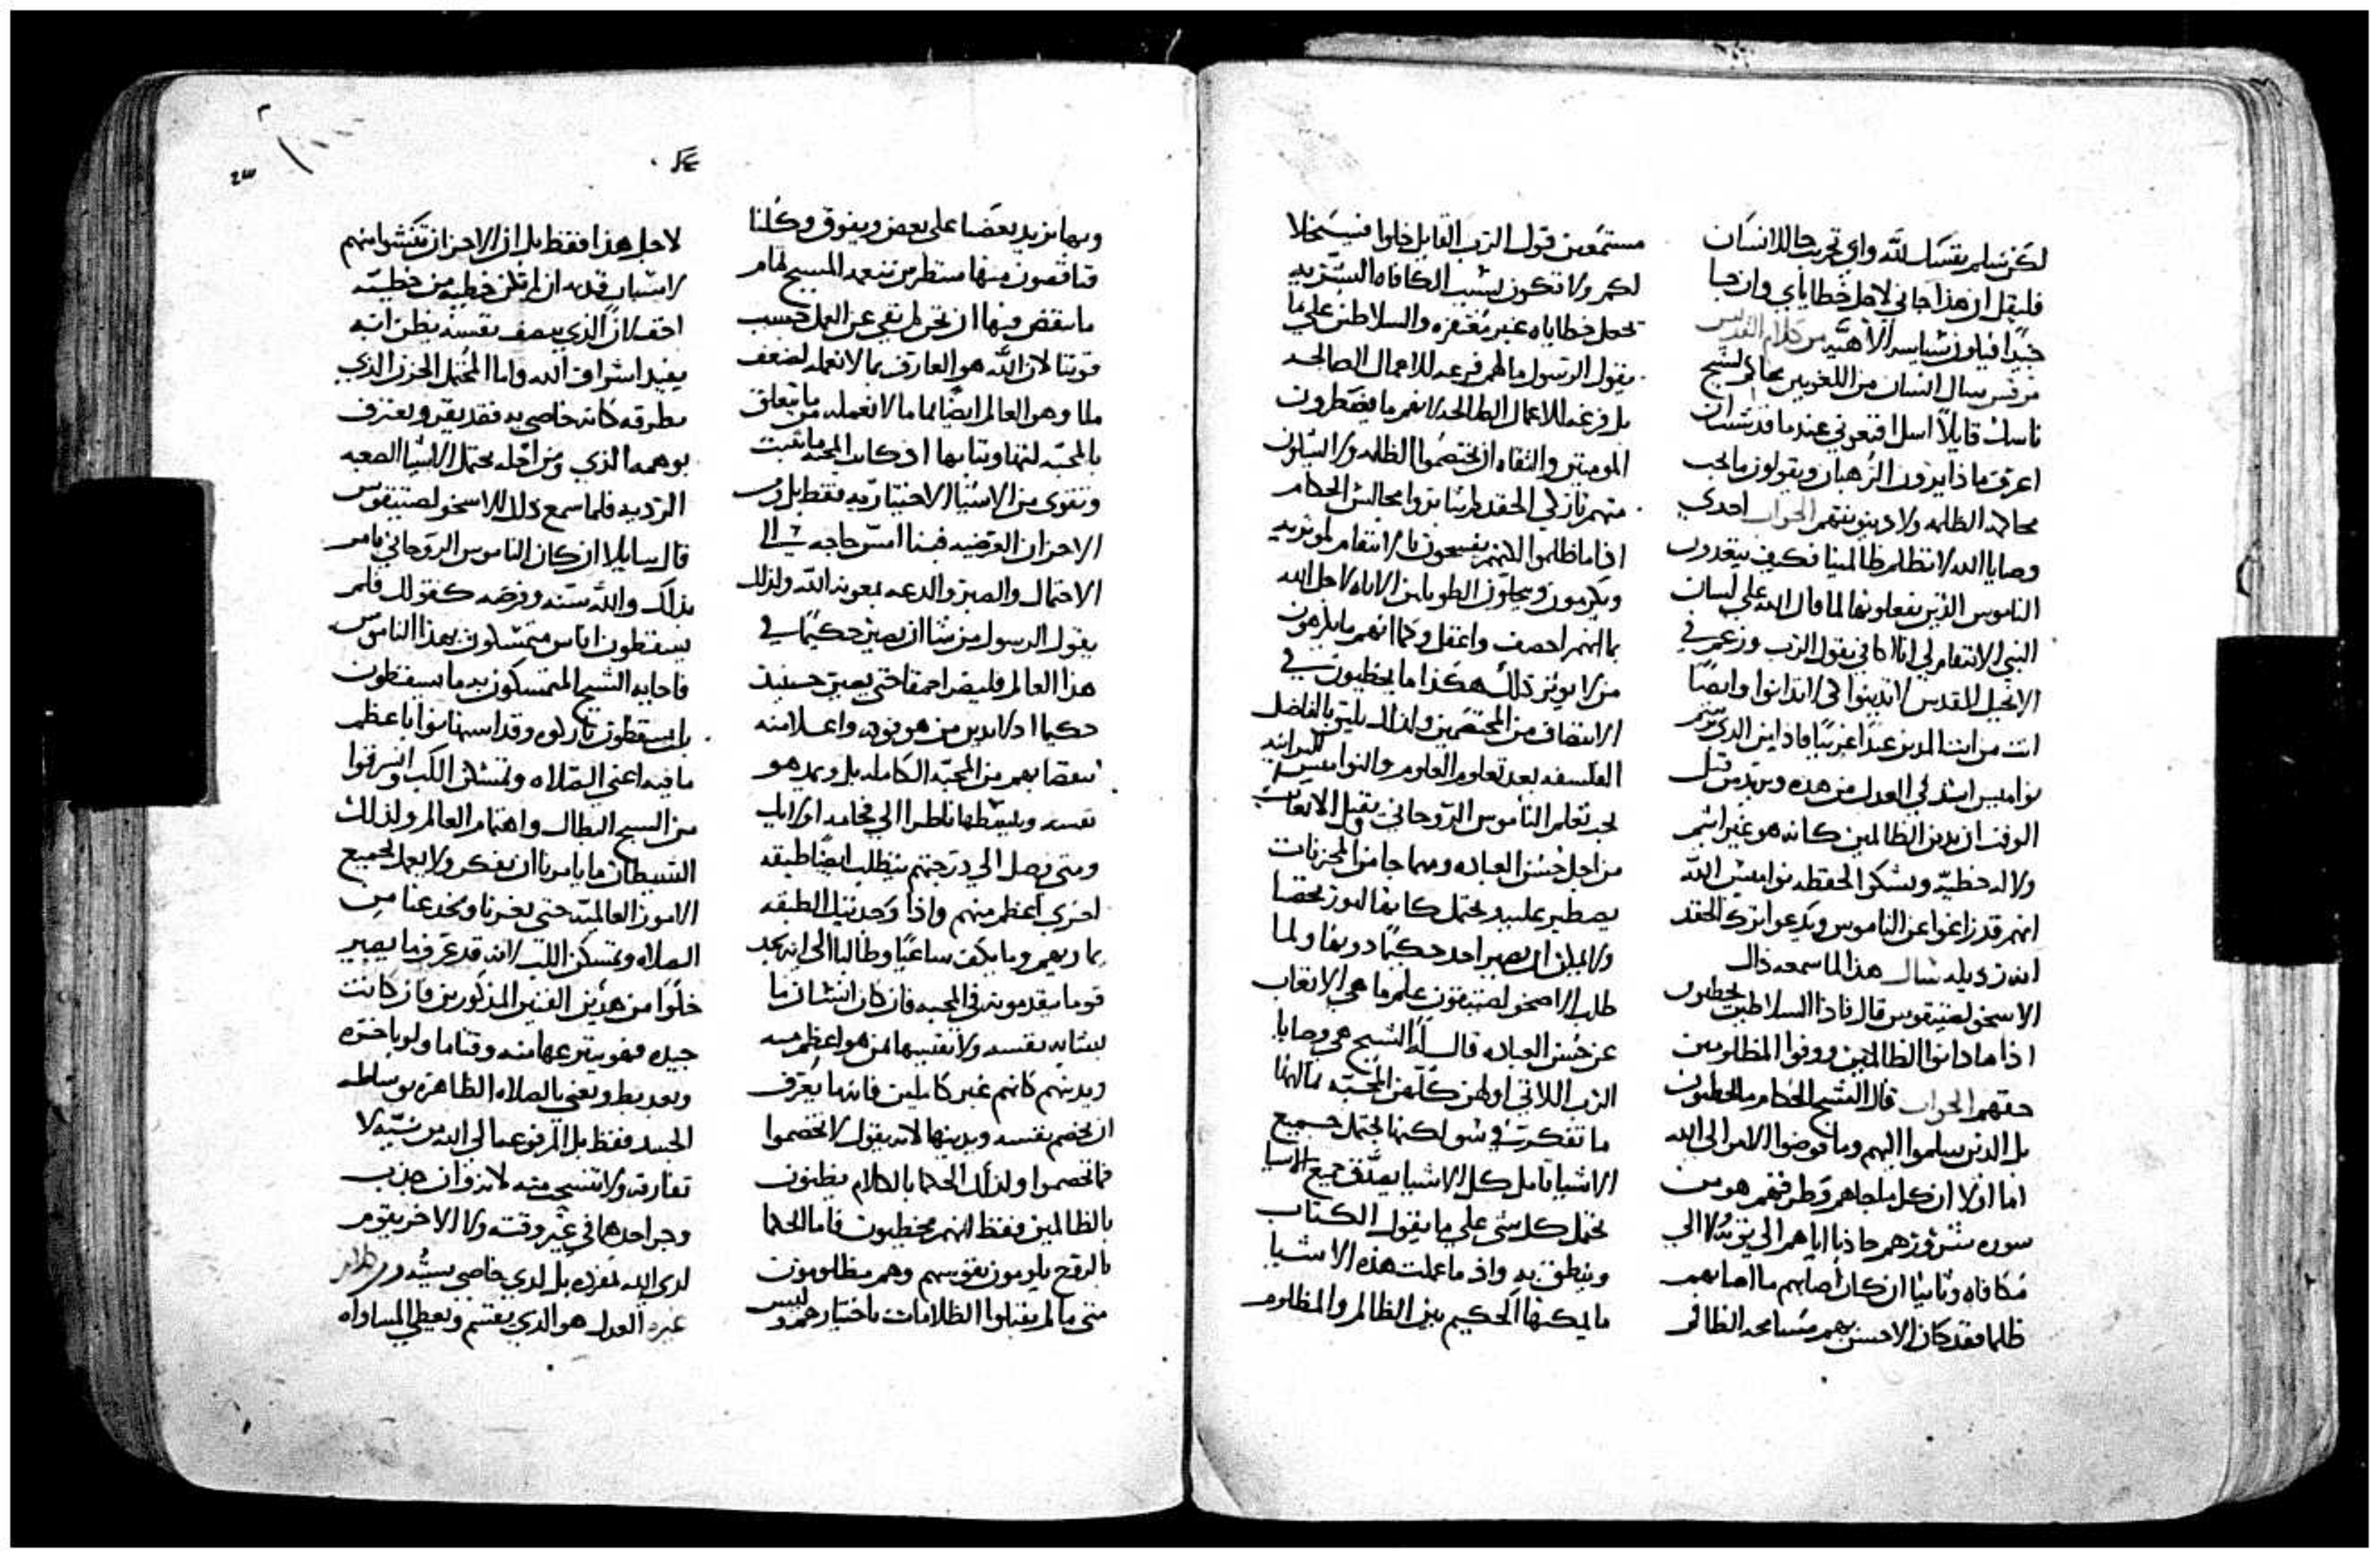 لكن سلم نفسك لله واي تجربه حا للانسان
فليقل ان هذا جاني لاجل خطاياي وان جا
جيدا فباوزشياسه الالاهيه من كلام القديس
مرقس سال انسان من اللغويين محاكم لشيخ
ناسك قايلا اسل اقنعوني عندما قد شتان
اعرف ماذا يرون الرهبان ويقولون ما يجب
محاكمه الظلمه ولا دينونتهم الجواب احدي
وصايا الله لا تظلم ظالمينا فكيف يتعدون
الناموس الذين يفعلونها لما قال الله علي لسان
النبي الانتقام لي انا اكافي يقول الرب وزعم في
الانجيل المقدس لا تدينوا لكي لا تدانوا وايضا
انت من انت المدين عبدا غريبا فاذا اين الذي
نواميس اشد لي العدل من هده ويريد من قبل
الوقت ان يدين الظالمين كانه هو غير اثيم
ولا له خطيه ويشكر الحفظه نواميس الله
انهم قد زاغوا عن الناموس ويدعوا ترك الحقد
انه رديله سال هذا لما سمعه ذاك
الاسخولستيقوس قال فاذا السلاطين يخطيون
اذا ما دانوا الظالمين ووفوا المظلومين
حقهم الجواب قال الشيخ الحكام ما يخطيون
بل الذين سلموا اليهم وما فوضوا الامر الي الله
اما اولا ان كل ملجاهم وطرفهم هو من
سوره شرورهم جاذبا اياهم الي توبه لا الي
مكافاه وثانيا ان كان اصابهم ما اصابهم
ظلما فقد كان الاحسن بهم مسامحه الظالم
مستمعين قول الرب القايل خلوا فسيتخلا
لكم ولا تكون بسبب المكافاه الشريره
تحمل خطاياه غير مغتفره والسلاطين علي ما
يقول الرسول ما لهم فزعه للاعمال الصالحه
بل فزعه للاعمال الطالحه لانهم ما يضطرون
المومنين والتقاه ان يختصموا الظلمه ولا السالون
منهم تاركي الحقد لم يشا يزوا مجالس الحكام
اذا ما ظلموا لانهم يفسحون بالانتقام لموثريه
ويكرمون ويجلون الطوبانيين الاباه لاجل الله
بما انهم احصف واعقل وكما انهم ما يلزمون
من لا يوثر ذلك هكذا ما يخطيون في
الانتصاف من المختصمين ولذلك يليق بالفاضل
الفلسفه بعد تعلم العلوم والنواميس البرانيه
يجد تعلم الناموس الروحاني وقبل الاتعاب
من اجل حسن العباده ومهما جا من المحزنات
يصطبر عليه يحتمل كانها لموز يخصا
ولا يمكن ان يصير احد حكيما دونها ولما
طلب الاصخولستيقوس علم ما هي الاتعاب
عن حسن العباده قال له الشيخ هي وصايا
الرب اللاتي اولهن كلهن المحبه فانها
ما تفكرت في سو لكنها تحتمل جميع
الاشيا تامل كل الاشيا تصدق جميع الاشيا
تحتمل كل شي علي ما يقول الكتاب
وينطق به واذ ما عملت هذه الاشيا
ما يمكنها الحكيم بين الظالم والمظلوم
وبها نزيد بعضا علي بعض ويفوق وكلنا
ناقصون منها منتظرين نعمه المسيح تمام
ما ينقص فيها ان نحن لم نقي عن العمل حسب
قوتنا لان الله هو العارف بما لا نعمله لضعف
ملا وهو العالم ايضا بما ما لا نعمله من ما يتعلق
بالمحبه لتهاوننا بها اذ كانت المحبه ما تثبت
وتقوي من الاشيا الاختياريه فقط بل ومن
الاحزان العرضيه فبنا امس حاجه الي
الاحتمال والصبر والدعه بمعونه الله ولذلك
يقول الرسول من شا ان يصير حكيما في
هذا العالم فليصر احمقا حتي يصير حينيذ
حكيما اذ لا يدين من هو فوقه واعلا منه
بنقصانهم من المحبه الكامله بل وهو هو
نفسه ويبسطها ناظرا الي محامد اوليك
ومتي يصل الي درجتهم يتطلب ايضا طبقه
اخري اعظم منهم واذا وجد تلك الطبقه
بما ويهم وما يكف ساعيا وطالبا الي ان يجد
قوما يتقدمونه في المحبه فان كان انسان ما
يشابه نفسه ولا يقيسها بمن هو اعظم منه
ويدينهم كانهم غير كاملين فانه ما يعرف
ان يخصم نفسه ويدينها لانه يقول لا تخصموا
فما تخصموا ولذلك الحكما بالكلام يظنون
بالظالمين فقط انهم يخطيون فاما الحكما
بالروح يلومون نفوسهم وهم مظلومون
متي ما لم يقبلوا الظلامات باختيارهم وليس
لاجل هذا فقط بل ان الاحزان تنشوا منهم
لاسباب قديمه ان لم تكن خطيه من خطيته
اخف لان الذي يصف نفسه يظن انه
يفيد اشراف الله واما المحتمل الحزن الذي
يطرقه كانه خاصي به فقد يقر ويعترف
بوهمه الذي ومن اجله يحتمل الاشيا الصعبه
الرديه فلما سمع ذلك الاسخولستيقوس
قال سايلا ان كان الناموس الروحاني يامر
بذلك والله سنه وفرضه كقولك فلم
يسقطون اناس متمسكون بهذا الناموس
فاجابه الشيخ المتمسكون به ما يسقطون
بل يسقطون تاركوه وقد استهانوا باعظم
ما فيه اعني الصلاه وتمسكن القلب وانسرقوا
من السبح البطال واهتمام العالم ولذلك
الشيطان ما يامرنا ان نفكر ولا يعمل لجميع
الامور العالميه حتي يغيرنا ويخدعنا من
الصلاه وتمسكن القلب لانه قد عرف ما يصير
خلوا من هذين الفنين المذكورين فان كانت
جيده فهو ينزعها منه وقتا ما ولو باخره
وبعد بطو يعني بالصلاه الظاهره بوساطه
الجسد فقط بل المرفوعه الي الله من نيه لا
تفارقه ولا تنسيح منه لانه وان جذب
وجر احدها في غير وقته ولا الاخر يقوم
لدي الله بمفرده بل لدي خاصي بسيده
غيره العدل هو الذي يقسم ويعطي المساواه